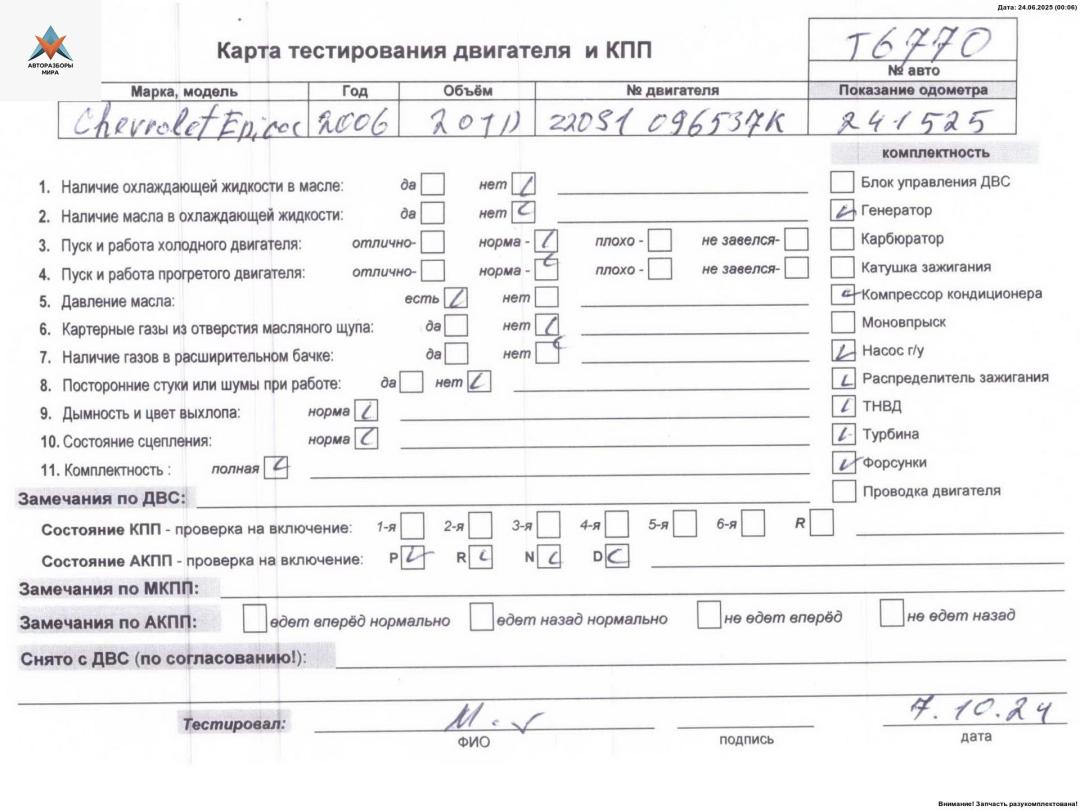 Дата: 24.06.2025 (00:06)
АВТОРАЗБОРЫ
МИРА
Карта тестирования двигателя и КПП
T6770
№ авто
Марка, модель Год Объём № двигателя Показание одометра
Chevrolet Epica 2006 2 0 TD Z20S1 096537K 241525
комплектность
1. Наличие охлаждающей жидкости в масле: да нет
Блок управления ДВС
2. Наличие масла в охлаждающей жидкости: да нет
Генератор
3. Пуск и работа холодного двигателя: отлично- норма - плохо - не завелся-
Карбюратор
4. Пуск и работа прогретого двигателя: отлично- норма - плохо - не завелся-
Катушка зажигания
5. Давление масла: есть нет
Компрессор кондиционера
6. Картерные газы из отверстия масляного щупа: да нет
Моновпрыск
7. Наличие газов в расширительном бачке: да нет
Насос г/у
8. Посторонние стуки или шумы при работе: да нет
Распределитель зажигания
9. Дымность и цвет выхлопа: норма
ТНВД
10. Состояние сцепления: норма
Турбина
11. Комплектность : полная
Форсунки
Замечания по ДВС:
Проводка двигателя
Состояние КПП - проверка на включение: 1-я 2-я 3-я 4-я 5-я 6-я R
Состояние АКПП - проверка на включение: P R N D
Замечания по МКПП:
Замечания по АКПП: едет вперёд нормально едет назад нормально не едет вперёд не едет назад
Снято с ДВС (по согласованию!):
Тестировал: 7.10.24
ФИО подпись дата
Внимание! Запчасть разукомплектована!